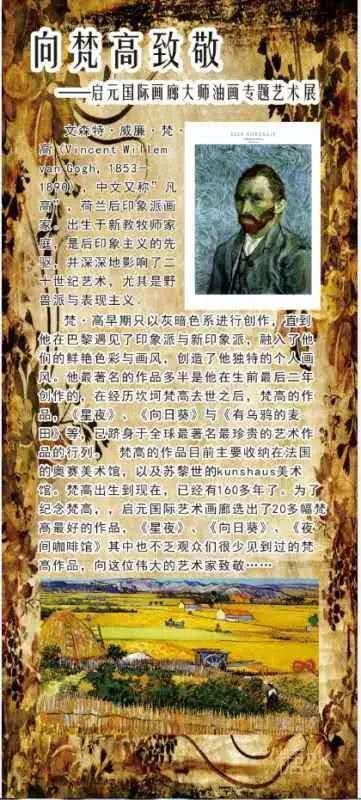 向梵高致敬
——启元国际画廊大师油画专题艺术展
文森特·威廉·梵·
高（Vincent Willem
van Gogh, 1853—
1890），中文又称”凡
高”，荷兰后印象派画
家。出生于新教牧师家
庭，是后印象主义的先
驱，并深深地影响了二
十世纪艺术，尤其是野
兽派与表现主义.
梵·高早期只以灰暗色系进行创作，直到
他在巴黎遇见了印象派与新印象派，融入了他
们的鲜艳色彩与画风，创造了他独特的个人画
风。他最著名的作品多半是他在生前最后二年
创作的，在经历坎坷梵高去世之后，梵高的作
品，《星夜》、《向日葵》与《有乌鸦的麦
田》等，已跻身于全球最著名最珍贵的艺术作
品的行列。 梵高的作品目前主要收纳在法国
的奥赛美术馆，以及苏黎世的kunshaus美术
馆。梵高出生到现在，已经有160多年了。为了
纪念梵高，，启元国际艺术画廊选出了20多幅梵
高最好的作品，《星夜》、《向日葵》、《夜
间咖啡馆》其中也不乏观众们很少见到过的梵
高作品，向这位伟大的艺术家致敬……